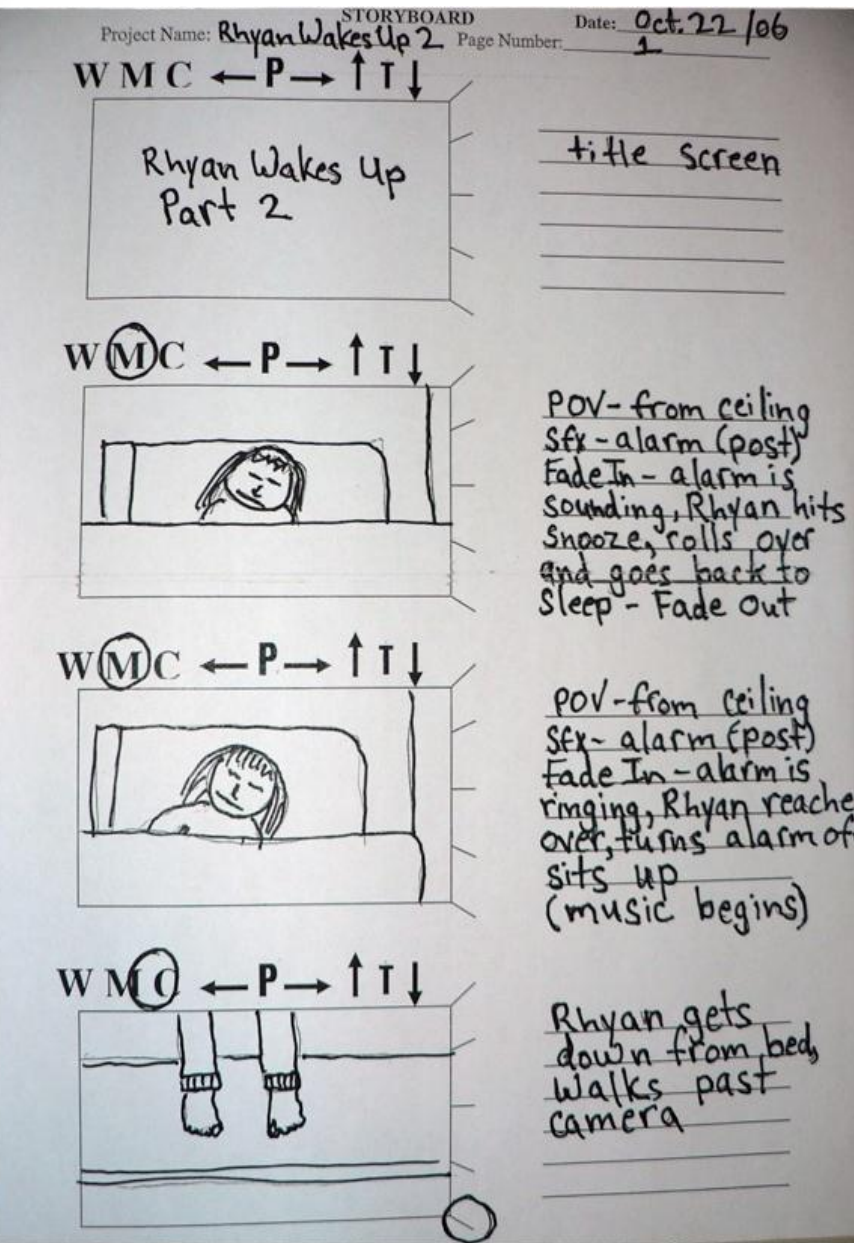 STORYBOARD
Project Name: Rhyan Wakes Up 2 Page Number: 1 Date: Oct. 22 /06
W M C ← P → ↑ T ↓
Rhyan Wakes Up
Part 2
title screen
W M C ← P → ↑ T ↓
POV - from ceiling
Sfx - alarm (post)
Fade In - alarm is
sounding, Rhyan hits
Snooze, rolls over
and goes back to
Sleep - Fade Out
W M C ← P → ↑ T ↓
POV - from ceiling
Sfx - alarm (post)
Fade In - alarm is
ringing, Rhyan reache
over, turns alarm of
sits up
(music begins)
W M C ← P → ↑ T ↓
Rhyan gets
down from bed,
walks past
camera